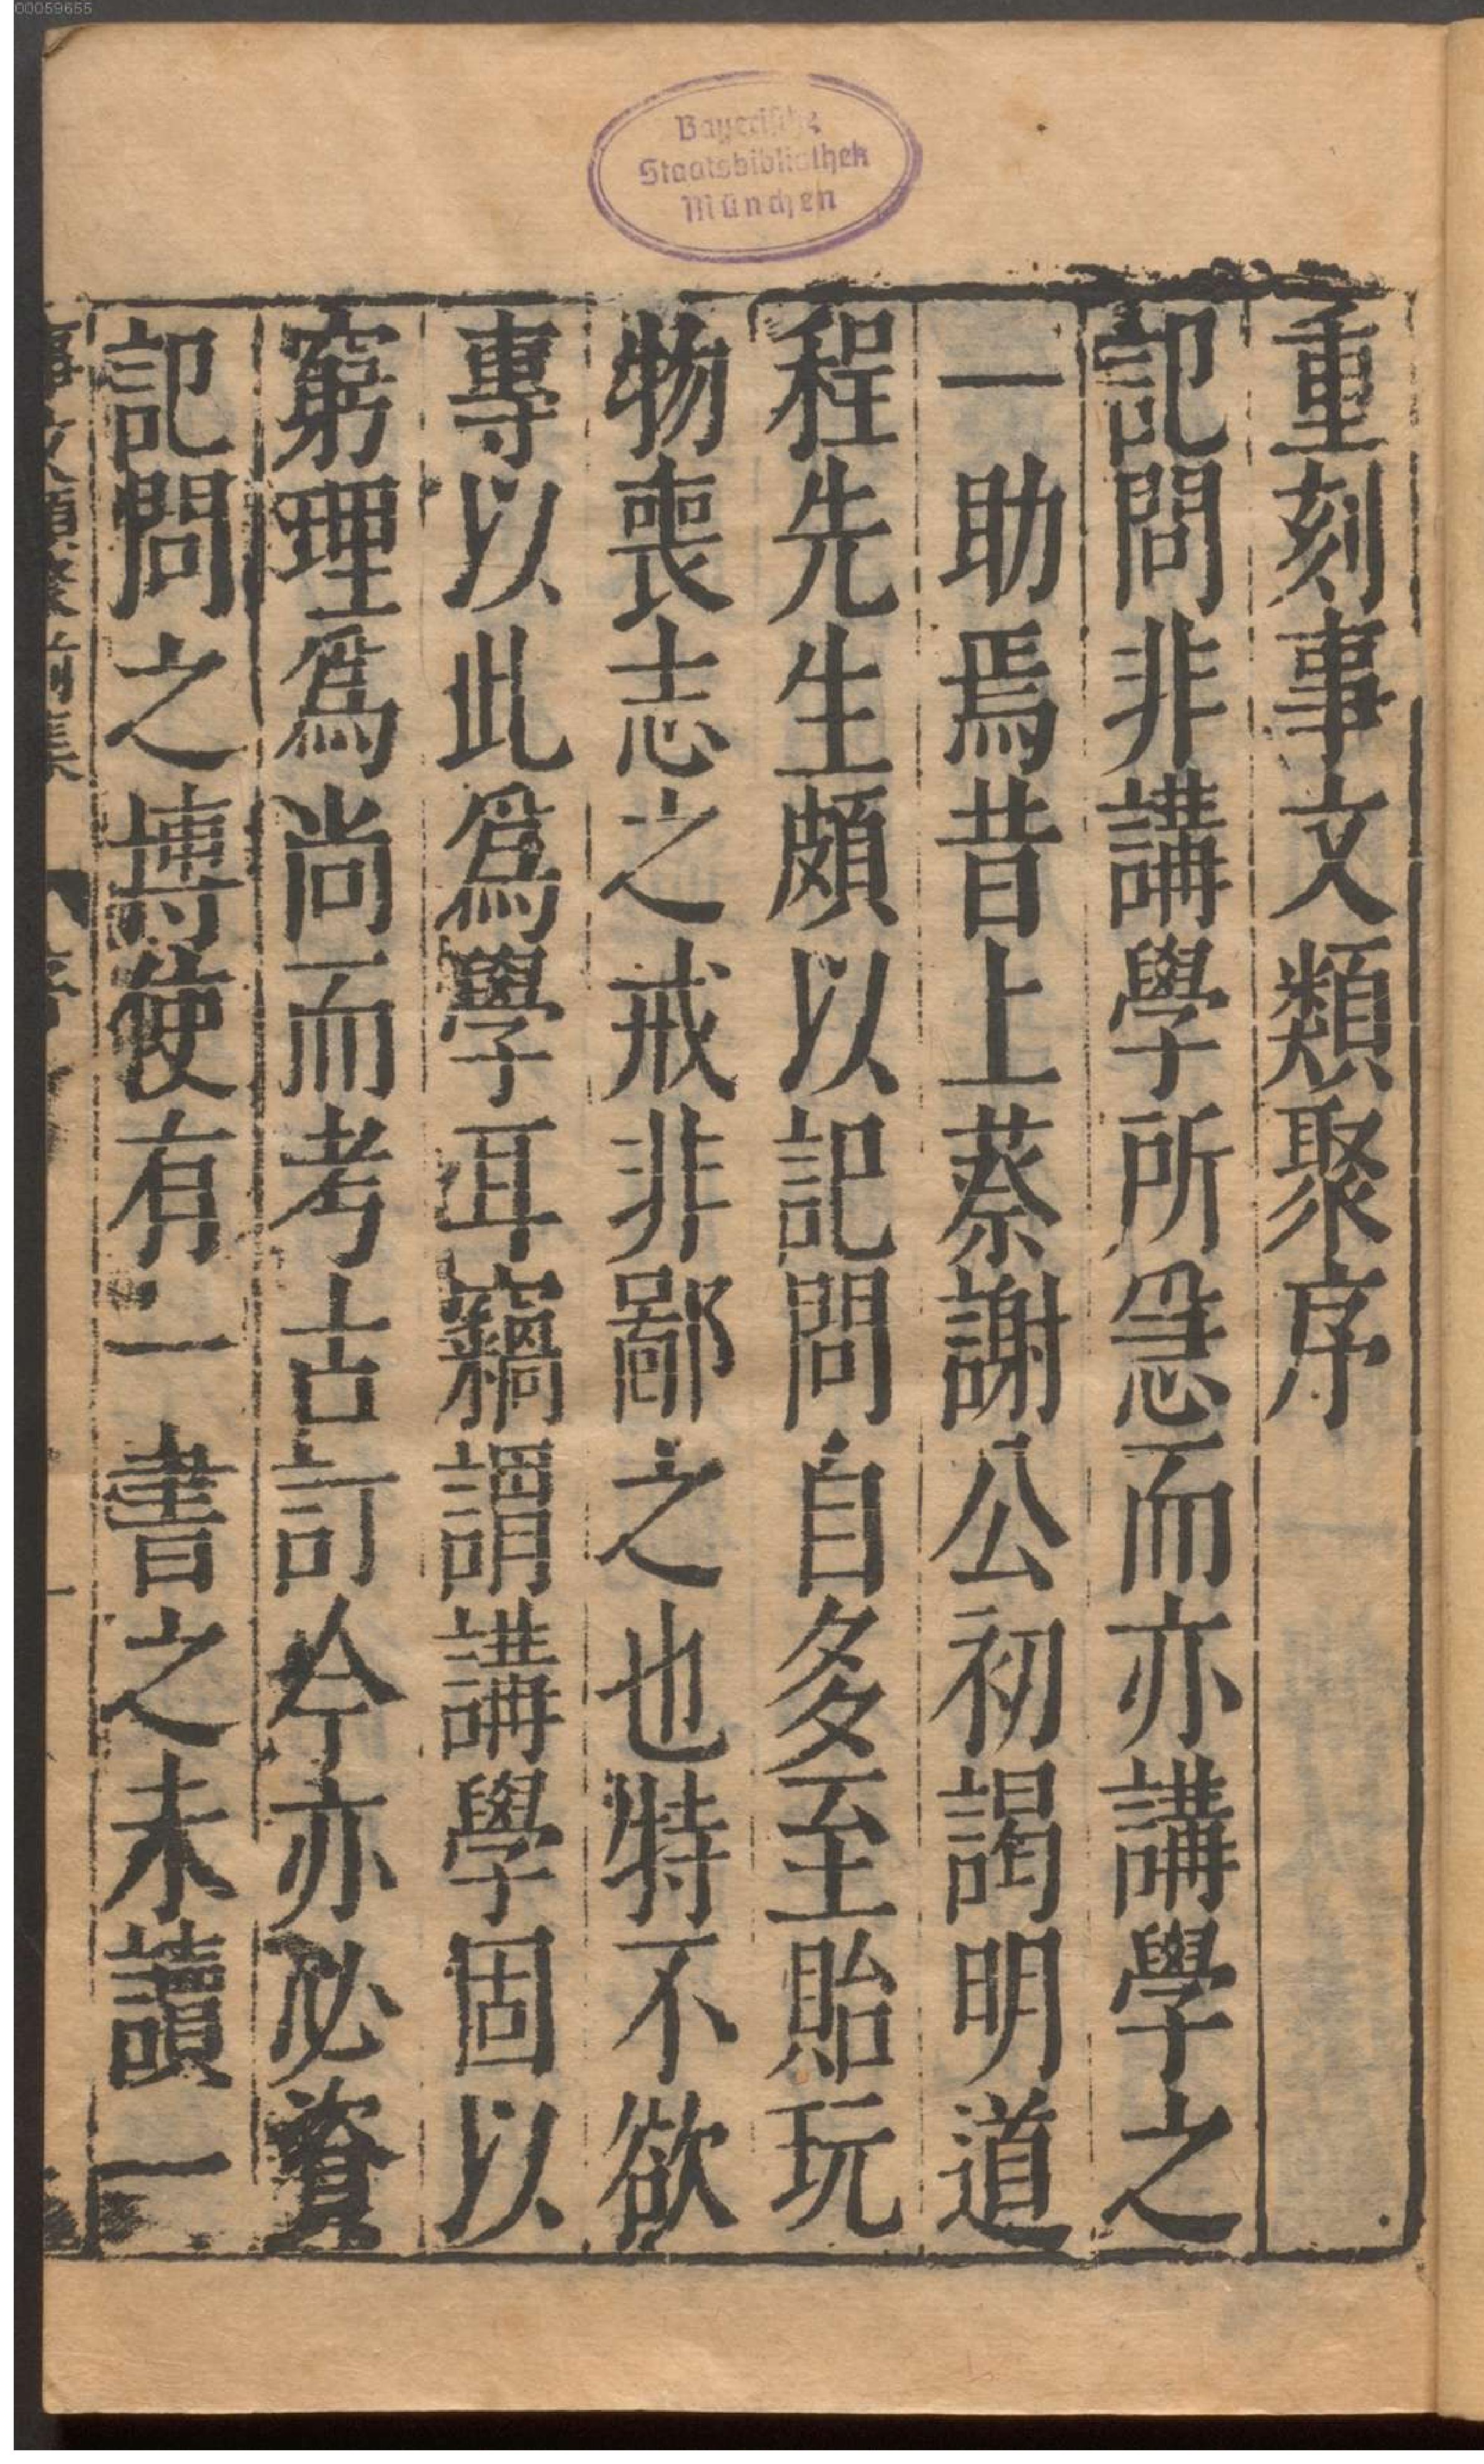 00059655
Bayerische
Staatsbibliothek
München
重刻事文類聚序
記問非講學所急而亦講學之
一助焉昔上蔡謝公初謁明道
程先生頗以記問自多至貽玩
物喪志之戒非鄙之也特不欲
專以此爲學耳竊謂講學固以
窮理爲尚而考古訂今亦必資
記問之博使有一書之未讀一
事文類聚前集 序 一